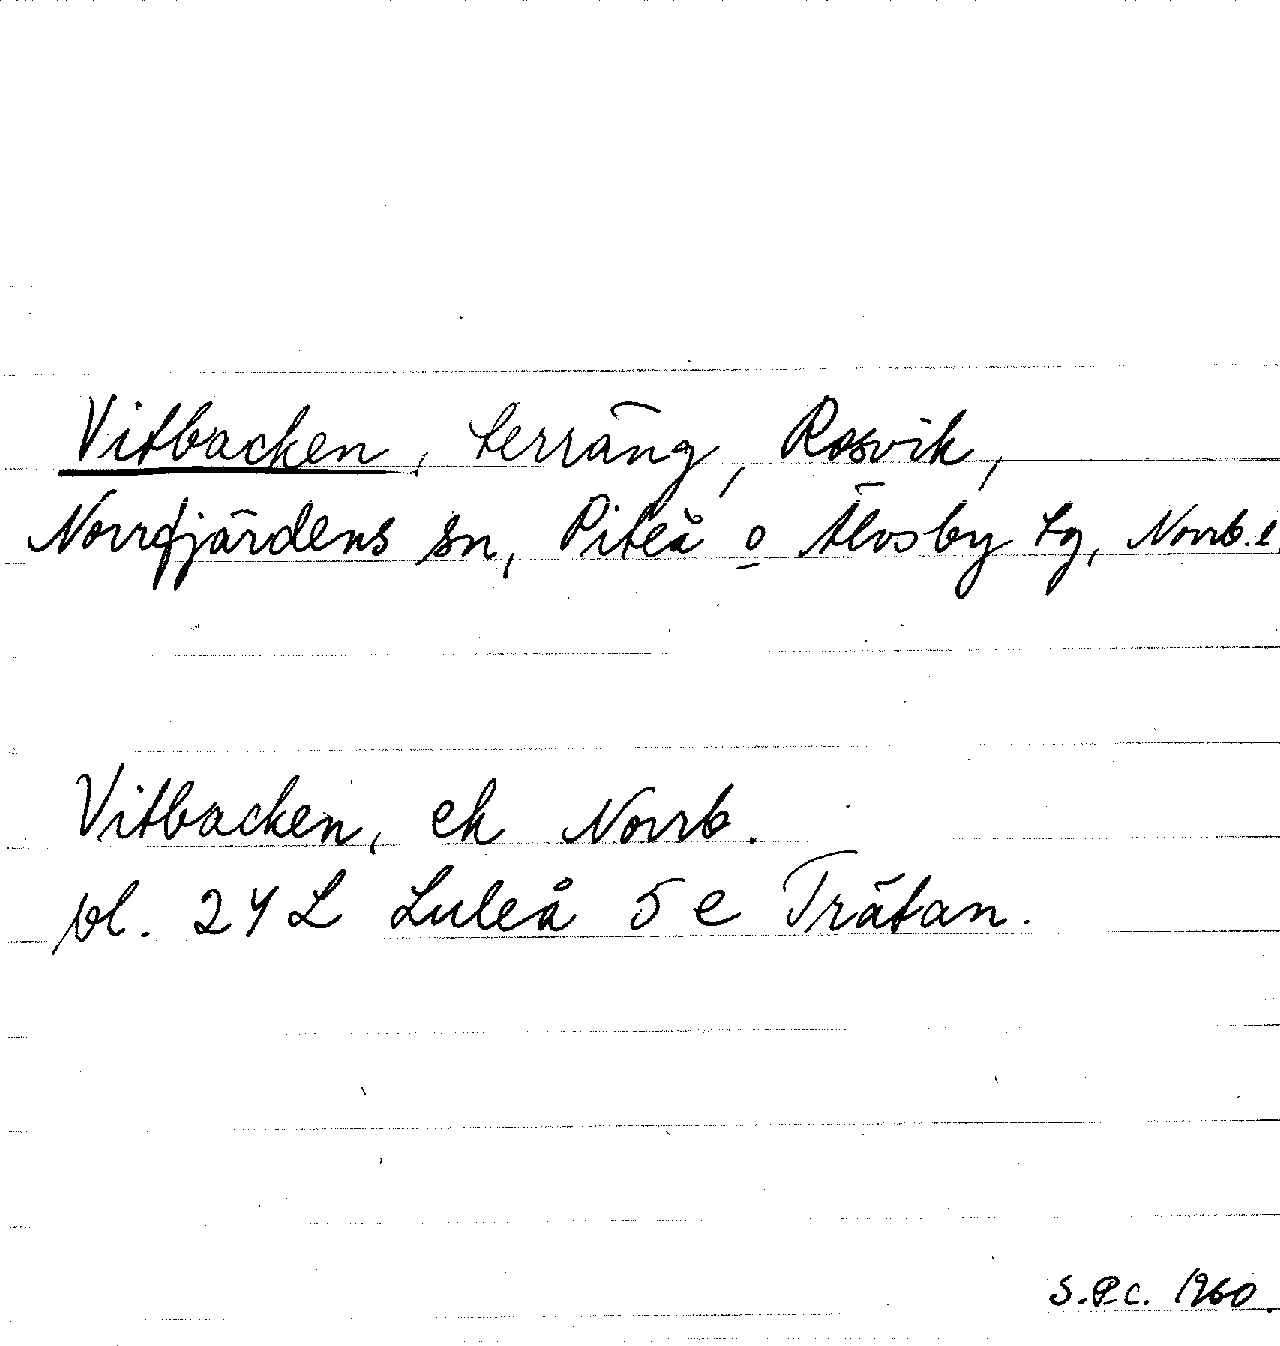 Vitbacken, terräng, Rosvik,
Norrfjärdens sn, Piteå o Älvsby tg, Norrb.l.
Vitbacken, ek Norrb.
bl. 24L Luleå 5e Trätan.
S.P.C. 1960.